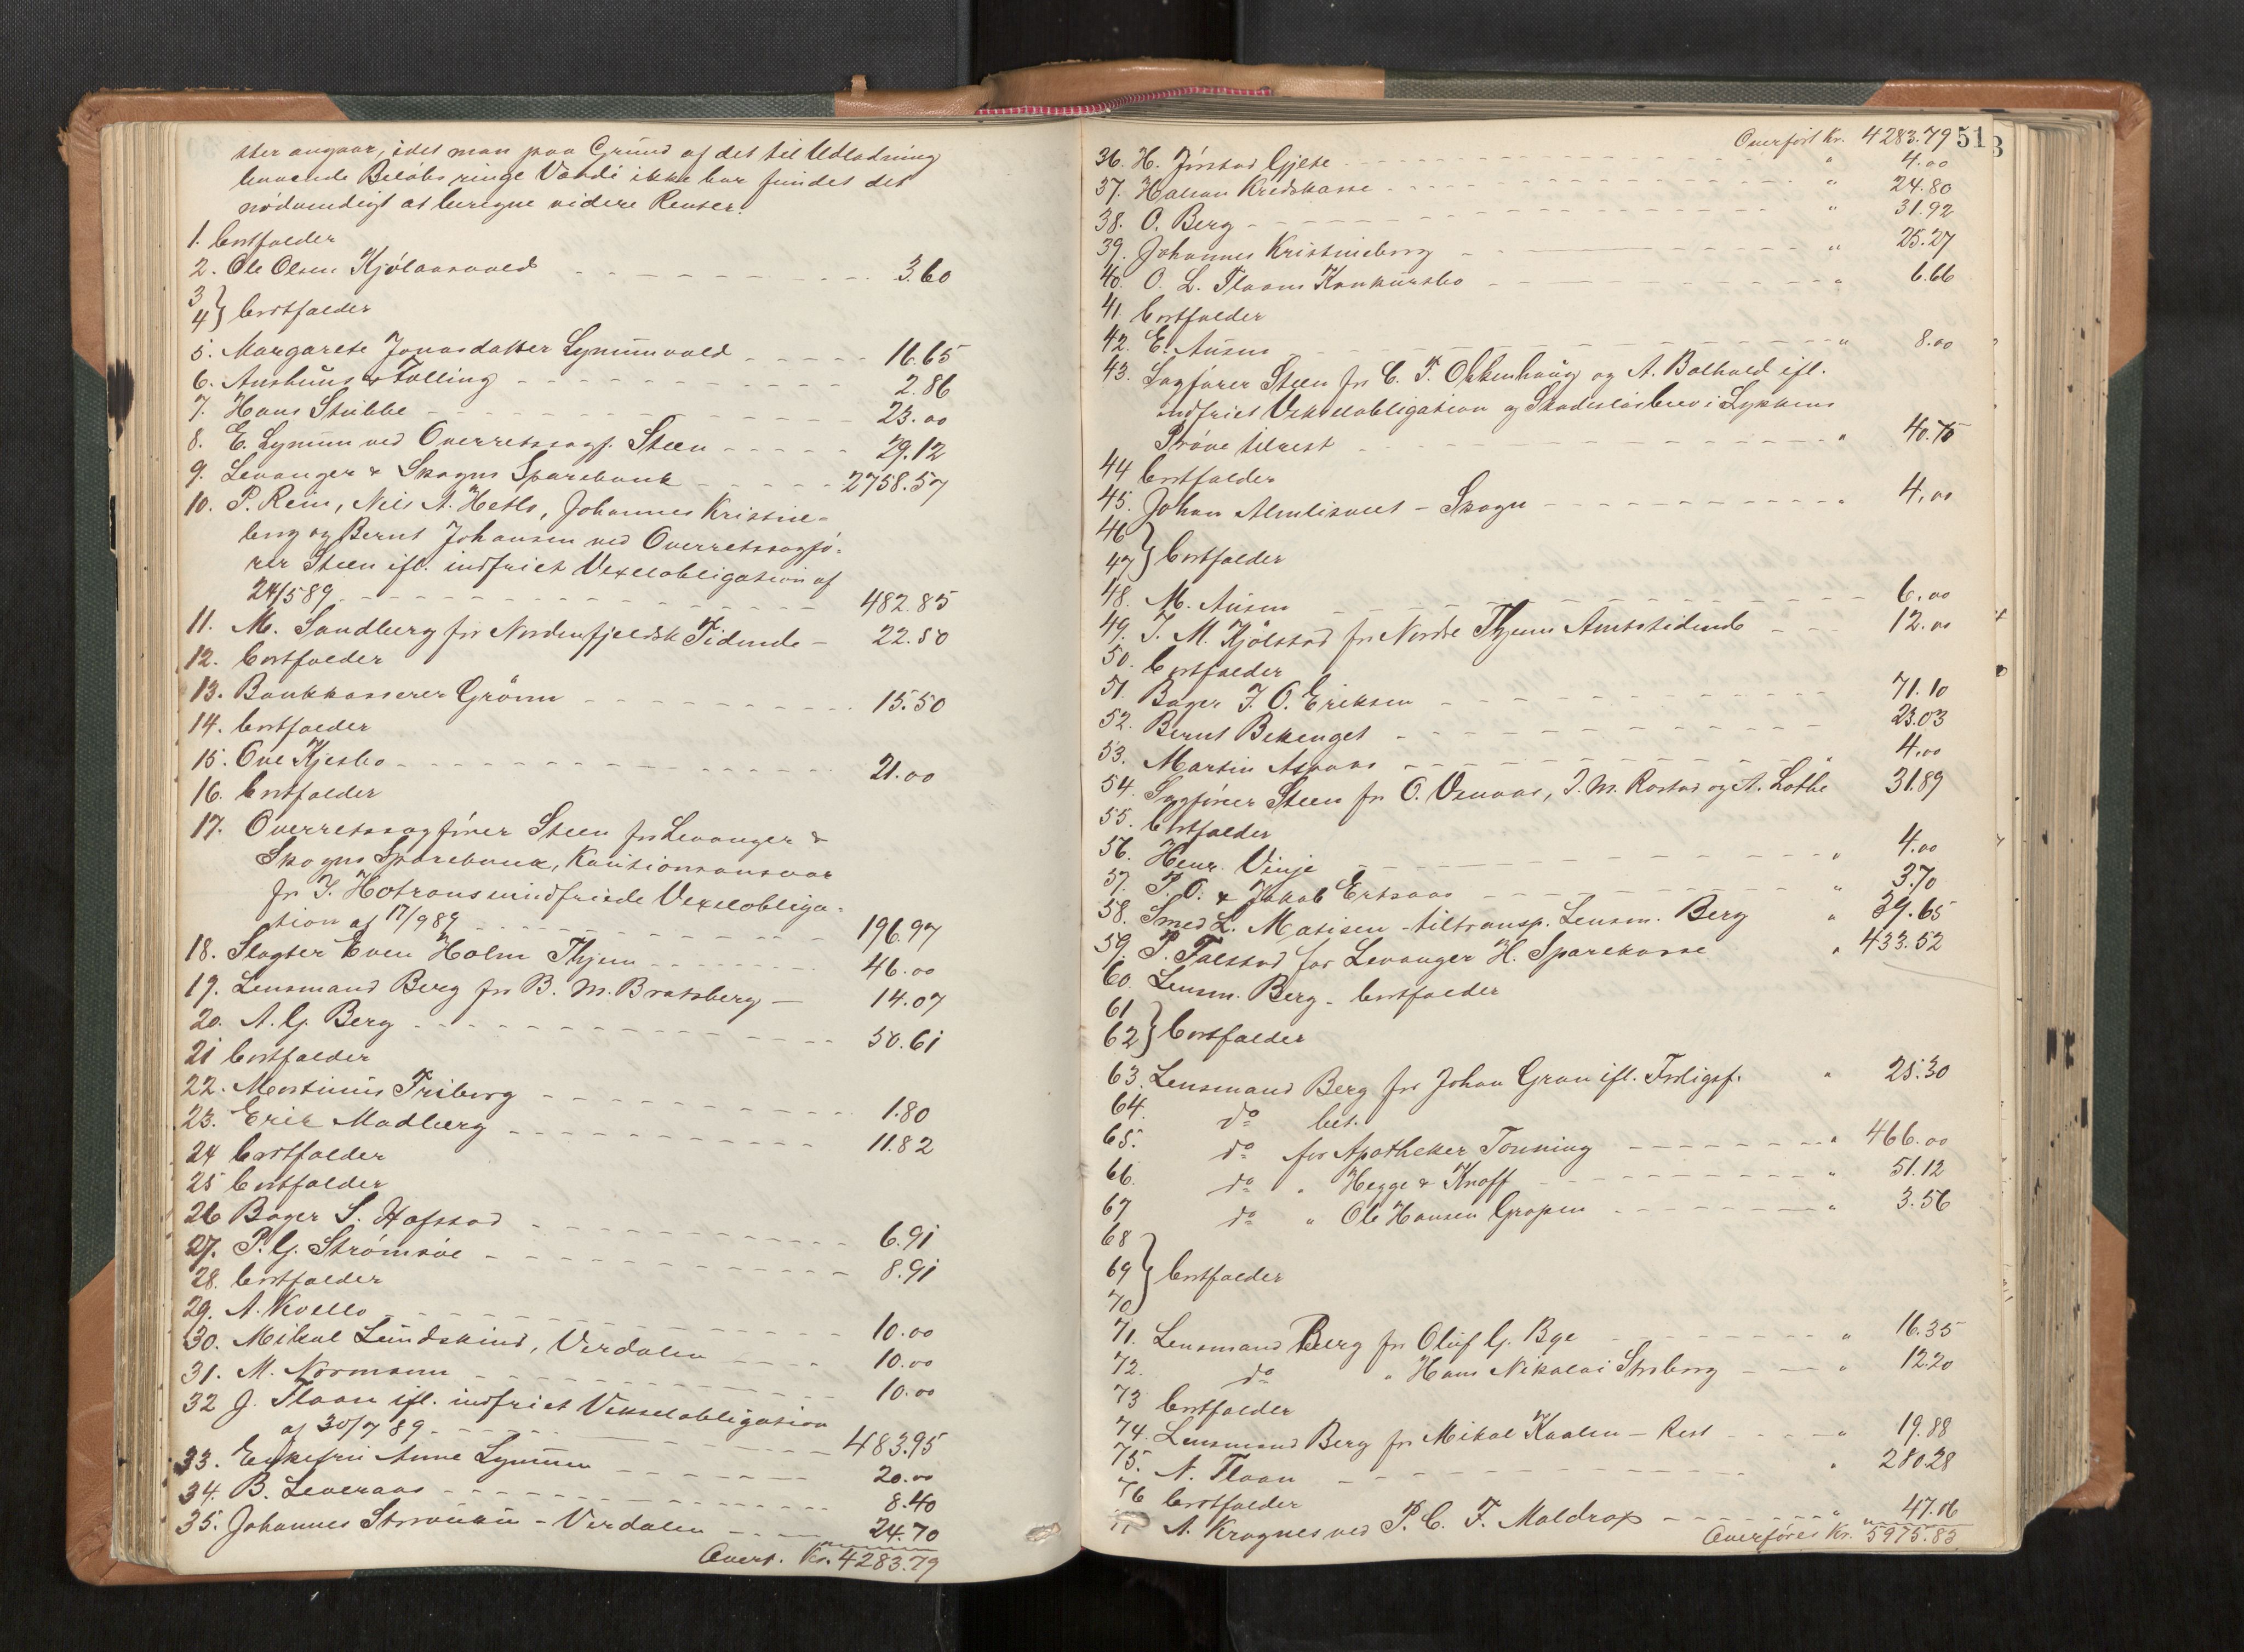 ster angaar, idet man paa Grund af det til Udlodning
havende Beløbs ringe Værdi ikke har fundet det
nødvendigt at beregne videre Renter.
1. bortfalder
2. Ole Olsen Kjølaasvald 3.60
3
4 } bortfalder
5. Margarete Jonasdatter Lynumvald 16.65
6. Aushuus & Tølling 2.86
7. Hans Stubbe 23.00
8. E. Lynum ved Overretssagf. Steen 29.12
9. Levanger & Skogns Sparebank 2758.57
10. P. Rein, Nils A. Hetlo, Johannes Kristine-
berg og Bernt Johansen ved Overretssagfø-
rer Steen ifl. indfriet Vexelobligation af
24/5 89 482.85
11. M. Sandberg for Nordenfjeldsk Tidende 22.50
12. bortfalder
13. Bankkasserer Grønn 15.50
14. bortfalder
15. Ove Kjesbo 21.00
16. bortfalder
17. Overretssagfører Steen for Levanger &
Skogns Sparebank, Kautionsansvar
for J. Hotrans indfriede Vexelobliga-
tion af 17/9 89 196.97
18. Slagter Even Holm Thjem 46.00
19. Lensmand Berg for B. M. Bratsberg 14.07
20. A. G. Berg 50.61
21 bortfalder
22. Martinus Friborg 1.80
23. Erik Madberg 11.82
24 bortfalder
25 bortfalder
26 Bager S. Hafstad 6.91
27. P. G. Strømsøe 8.91
28. bortfalder
29. A. Kvello 10.00
30. Mikal Lundskind, Verdalen 10.00
31. M. Normann 10.00
32 J. Floan ifl. indfriet Vekselobligation
af 30/7 89 483.95
33. Enkefru Anne Lynum 20.00
34. B. Leveraas 8.40
35. Johannes - Verdalen 24.70
Overf. Kr. 4283.79
Overført Kr. 4283.79 51
36. H. Jørstad Gjete " 4.00
37. Halsan Kredskasse " 24.80
38. O. Berg " 31.92
39. Johannes Kristineborg " 25.27
40. O. L. Floans Konkursbo " 6.66
41. bortfalder
42. E. Ausen " 8.00
43. Sagfører Steen for C. T. Okkenhaug og A. Balhald ifl.
indfriet Vekselobligation og Skadesløsbrev i Lykkens
Prøve tilrest " 40.75
44 bortfalder
45. Johan Almlisveet - Skogn " 4.00
46
47 } bortfalder
48. M. Ausen 6.00
49. J. M. Kjølstad for Nordre Thjems Amtstidende 12.00
50. bortfalder
51. Bager J. O. Eriksen 71.10
52. Bernt Bekenget 23.03
53. Martin Aspaas " 4.00
54. Sagfører Steen for O. Venaas, J. M. Rostad og A. Lothe 31.89
55. bortfalder
56. Henr. Vinje " 4.00
57. P. O. & Jakob Ertsaas " 3.70
58. Smed L. Matisen - tiltransp. Lensm. Berg " 39.65
59. P. Falstad for Levanger H. Sparekasse " 433.52
60. Lensm. Berg - bortfalder
61
62 } bortfalder
63. Lensmand Berg for Johan Gran ifl. Forligsf. " 25.30
64. do bet.
65. do for Apotheker Tonning " 466.00
66. do " Hegge & Knoff " 51.12
67 do " Ole Hansen Gropen " 3.56
68
69 } bortfalder
70
71. Lensmand Berg for Oluf G. Bye " 16.35
72. do " Hans Nikolai Stoborg " 12.20
73 bortfalder
74. Lensmand Berg for Mikal Kaalen - Rest " 19.88
75. N. Floan " 280.28
76 bortfalder
A. Krognes ved P. C. F. Moldrop " 47.06
Overføres Kr. 5975.83